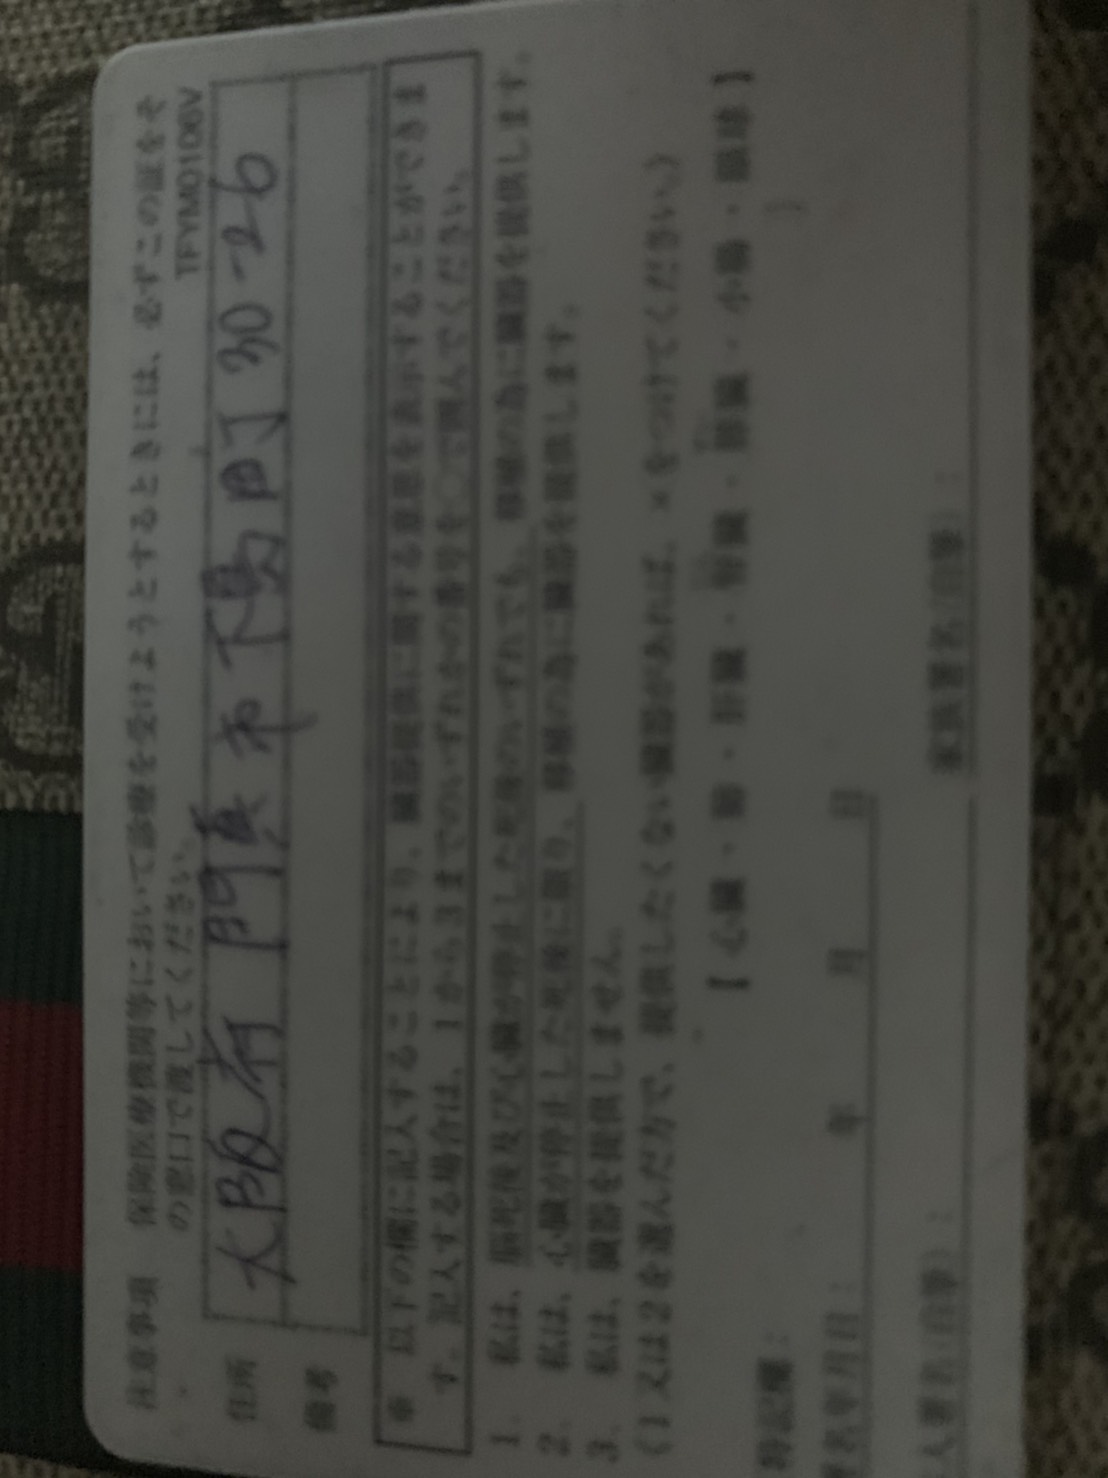 注意事項 保険医療機関等において診療を受けようとするときには、必ずこの証をそ
の窓口で渡してください。
TFYM0106V
住所 大阪府門真市下島町30-26
備考
※ 以下の欄に記入することにより、臓器提供に関する意思を表示することができま
す。記入する場合は、1から3までのいずれかの番号を○で囲んでください。
1. 私は、脳死後及び心臓が停止した死後のいずれでも、移植の為に臓器を提供します。
2. 私は、心臓が停止した死後に限り、移植の為に臓器を提供します。
3. 私は、臓器を提供しません。
(1又は2を選んだ方で、提供したくない臓器があれば、×をつけてください。)
【心臓・肺・肝臓・腎臓・膵臓・小腸・眼球】
特記欄:
署名年月日: 年 月 日
人署名(自筆): 家族署名(自筆):